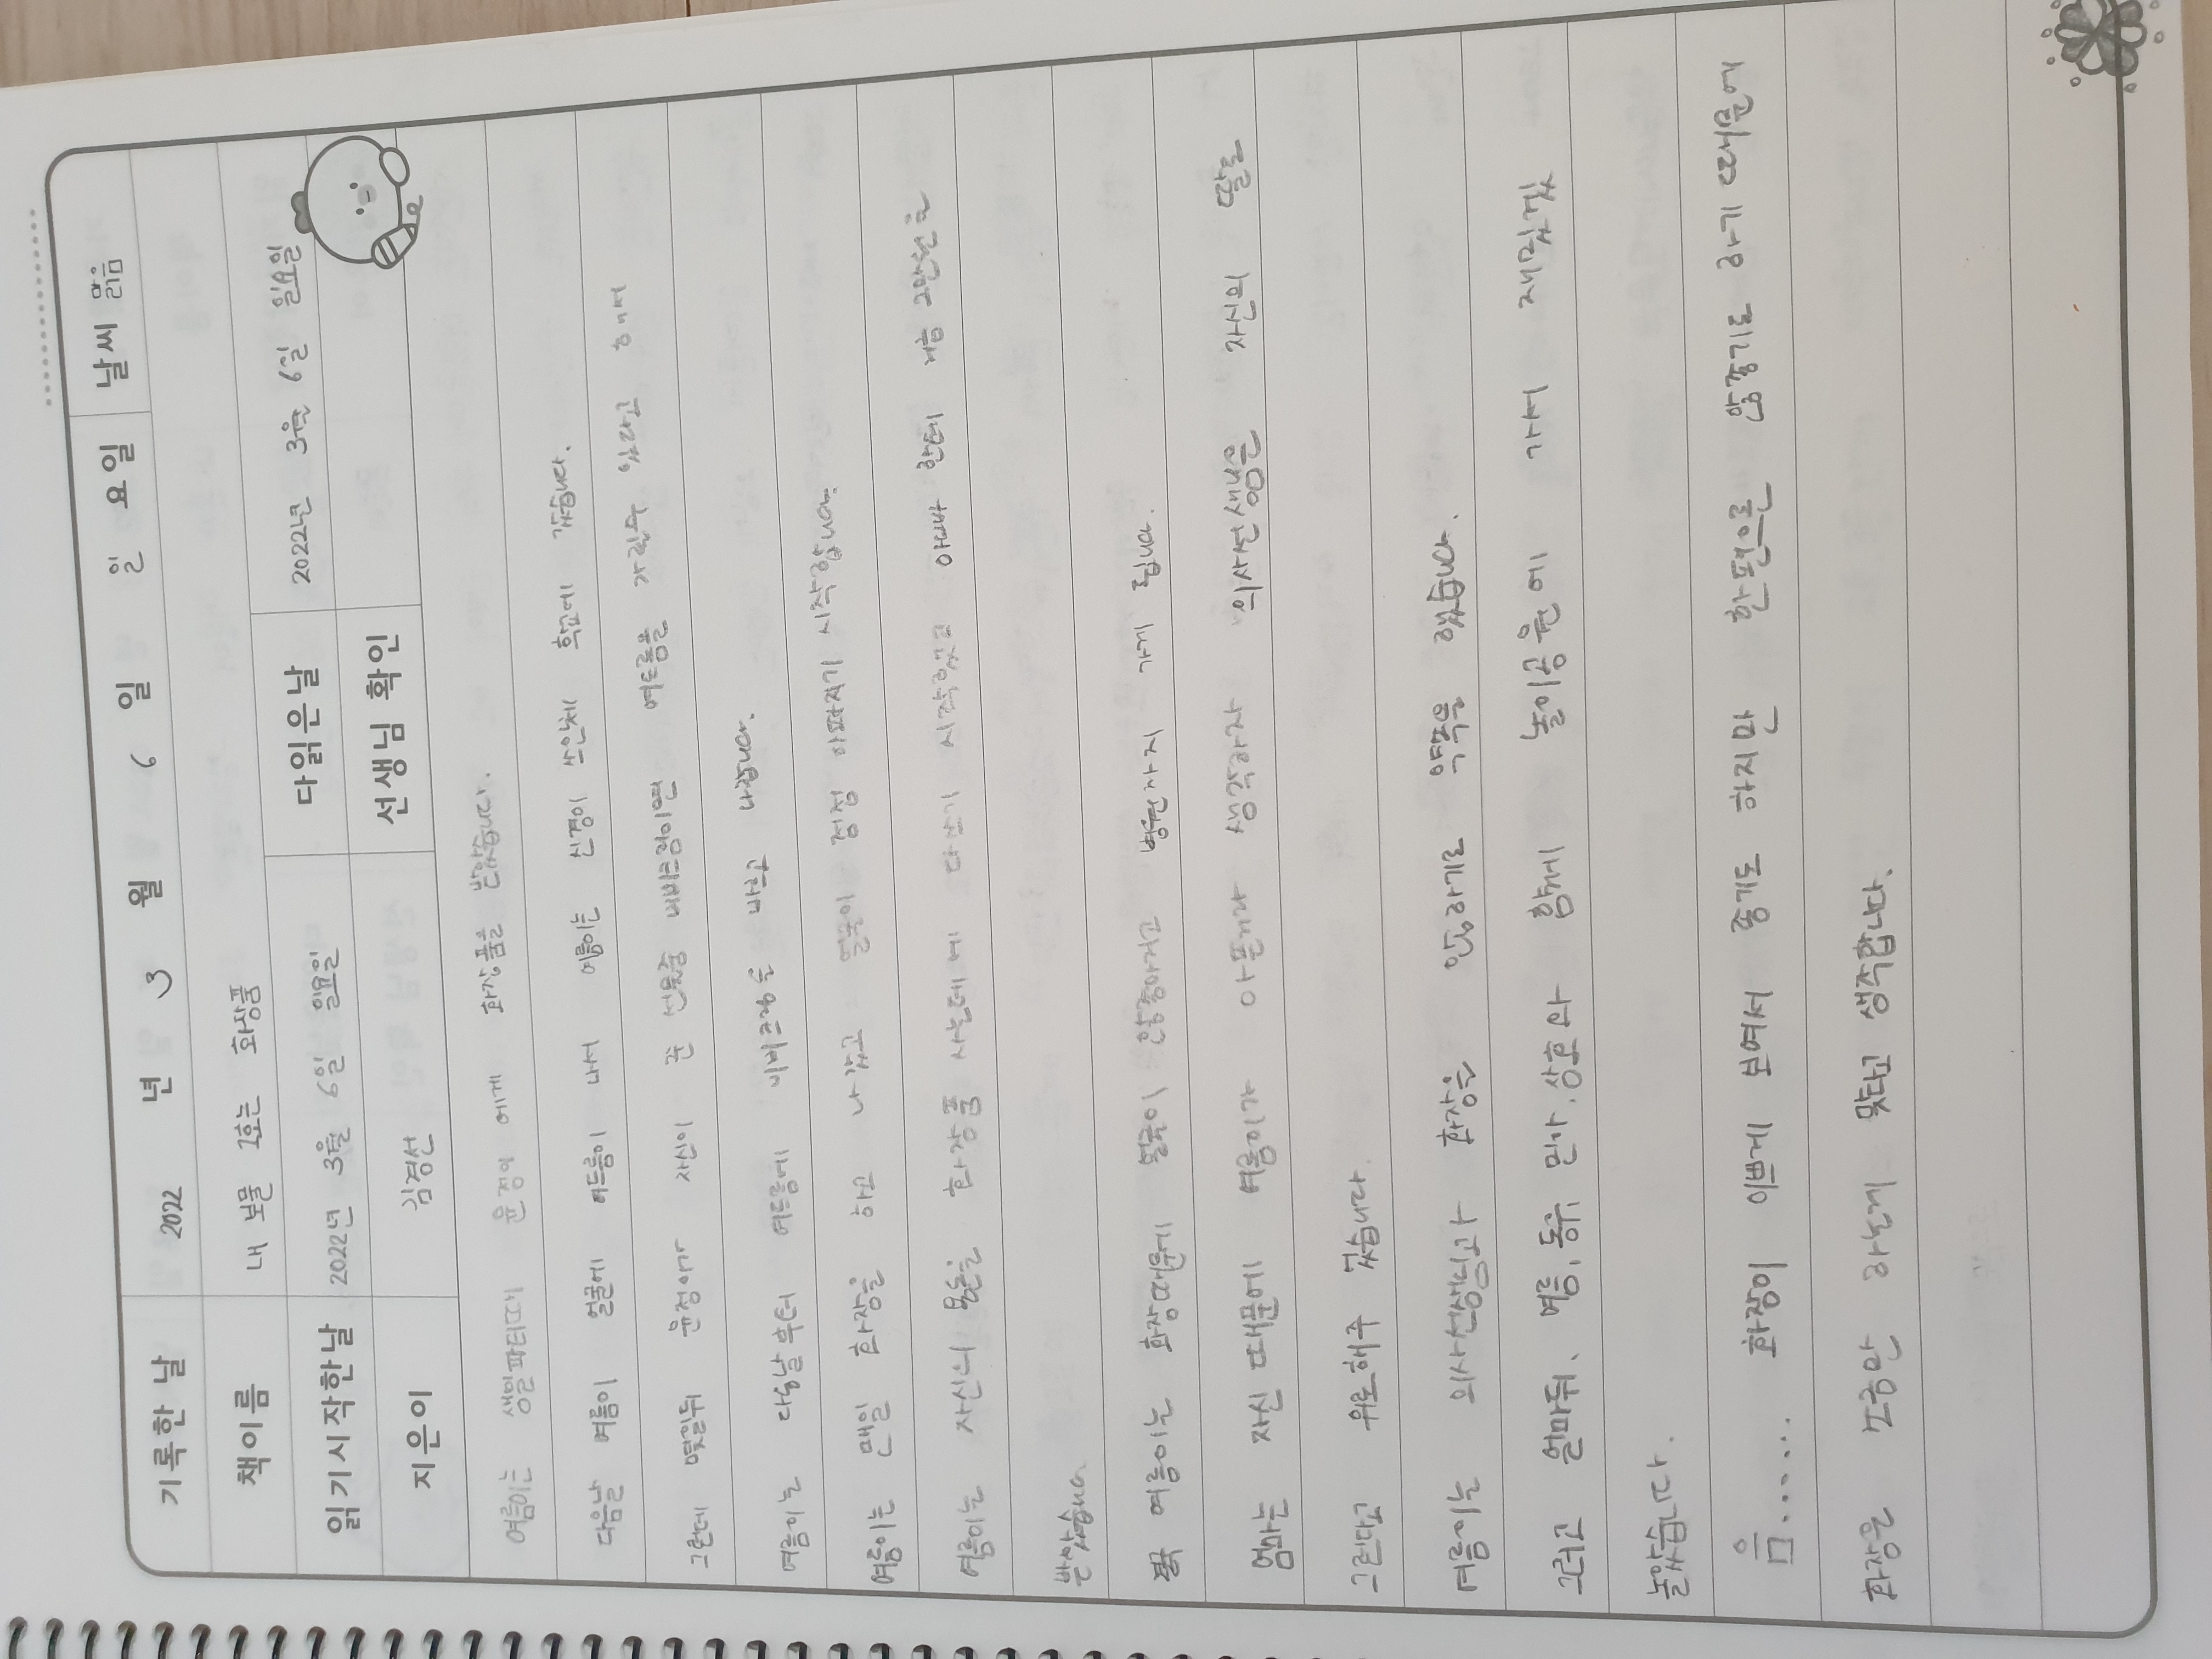 기록한 날 2022 년 3 월 6 일 일 요일 날씨 맑음
책이름 내 보물 1호는 화장품
읽기시작한날 2022년 3월 6일 일요일 다읽은날 2022년 3월 6일 일요일
지은이 김경선 선생님 확인
여름이는 생일파티때 윤정이 에게 화장품을 받았습니다.
다음날 여름이 얼굴에 여드름이 나서 여름이는 신경이 쓰인체 학교에 갔습니다.
그런데 몇일뒤 윤정이가 자신이 준 선물중 비비크림이면 여드름을 가릴수 있다고 해서
여름이는 다음날부터 여드름에 비비크림을 바르고 나갑니다.
여름이는 맨일 화장을 하고 나갔고 얼굴이 점점 아파지기 시작합니다.
여름이는 자신의 용돈을 화장품 사는데에 다쓰기 시작했고 아빠 한테 2만원을
받았습니다.
결국 여름이는 화장때문에 얼굴이 않좋아지고 병원까지 가게 됩니다.
엄마는 자신 때문에 여름이가 아픈거라 생각하자 의사선생님은 자신의 딸도
그런다고 위로해주 었습니다.
여름이는 의사선생님과 화장을 안하기로 약속을 했습니다.
그러고 얼마뒤, 여름, 동우, 민아, 상호와 함께 놀이공원에 가서 재밌겠
놀았습니다.
음...... 화장이 이쁘게 보여서 좋기도 하지만 한편으론 않좋기도 하기 때문에
화장은 조금만 하는게 맞다고 생각합니다.